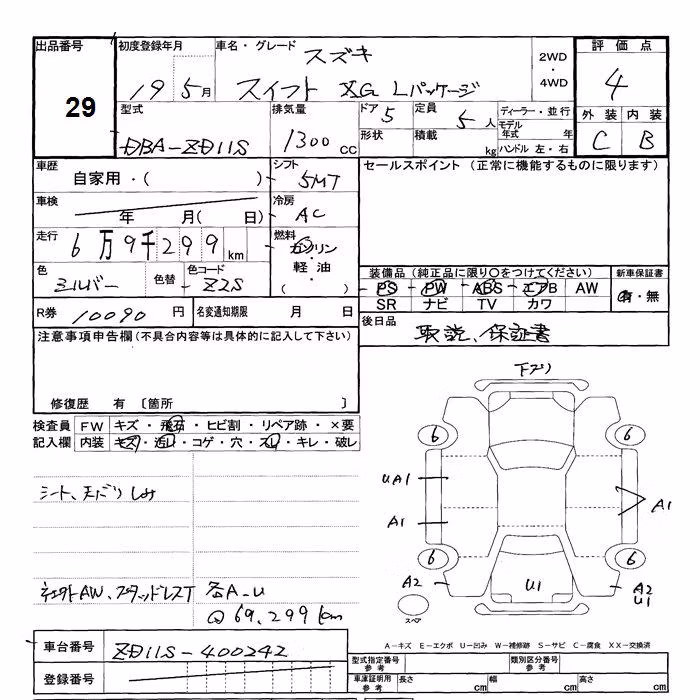 出品番号 初度登録年月 車名・グレード スズキ 2WD・4WD 評価点
29 19 5月 スイフト XG Lパッケージ 4
型式 排気量 ドア 5 定員 5人 ディーラー・並行 外装 内装
DBA-ZD11S 1300cc 形状 積載 kg モデル年式 年 C B
ハンドル 左・右
車歴 シフト セールスポイント (正常に機能するものに限ります)
自家用・( ) 5MT
車検 冷房
年 月( 日) AC
走行 燃料
6万9千299km ガソリン・軽油・( )
色 色替 色コード 装備品 (純正品に限り○をつけてください) 新車保証書
シルバー Z2S PS PW ABS エアB AW 有・無
SR ナビ TV カワ
R券 10090円 名変通知期限 月 日 後日品
取説、保証書
注意事項申告欄 (不具合内容等は具体的に記入して下さい)
修復歴 有 〔箇所 〕
検査員 FW キズ・飛石・ヒビ割・リペア跡・×要
記入欄 内装 キズ・汚レ・コゲ・穴・スレ・キレ・破レ
シート、天ばりしみ
AW、スタッドレスT 各A-U
@69,299km
下ズリ
6 6
UA1
A1 A1
6 6
A2 U1 A2
U1
スペア
A-キズ E-エクボ U-凹み W-補修跡 S-サビ C-腐食 XX-交換済
車台番号 ZD11S-400242
型式指定番号 参考 類別区分番号 参考
登録番号
車庫証明用 参考 長さ cm 幅 cm 高さ cm